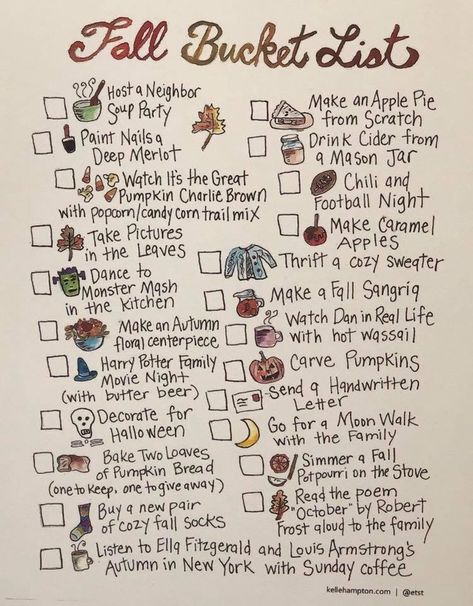 Fall Bucket List
Host a Neighbor
Soup Party
Paint Nails a
Deep Merlot
Watch It's the Great
Pumpkin Charlie Brown
with popcorn/candy corn trail mix
Take Pictures
in the Leaves
Dance to
Monster Mash
in the Kitchen
Make an Autumn
floral centerpiece
Harry Potter Family
Movie Night
(with butter beer)
Decorate for
Halloween
Bake Two Loaves
of Pumpkin Bread
(one to keep, one to give away)
Buy a new pair
of cozy fall socks
Make an Apple Pie
from Scratch
Drink Cider from
a Mason Jar
Chili and
Football Night
Make Caramel
Apples
Thrift a cozy sweater
Make a Fall Sangria
Watch Dan in Real Life
with hot wassail
Carve Pumpkins
Send a Handwritten
Letter
Go for a Moon Walk
with the Family
Simmer a Fall
Potpourri on the Stove
Read the poem
"October" by Robert
Frost aloud to the family
Listen to Ella Fitzgerald and Louis Armstrong's
Autumn in New York with Sunday coffee
kellehampton.com | @etst